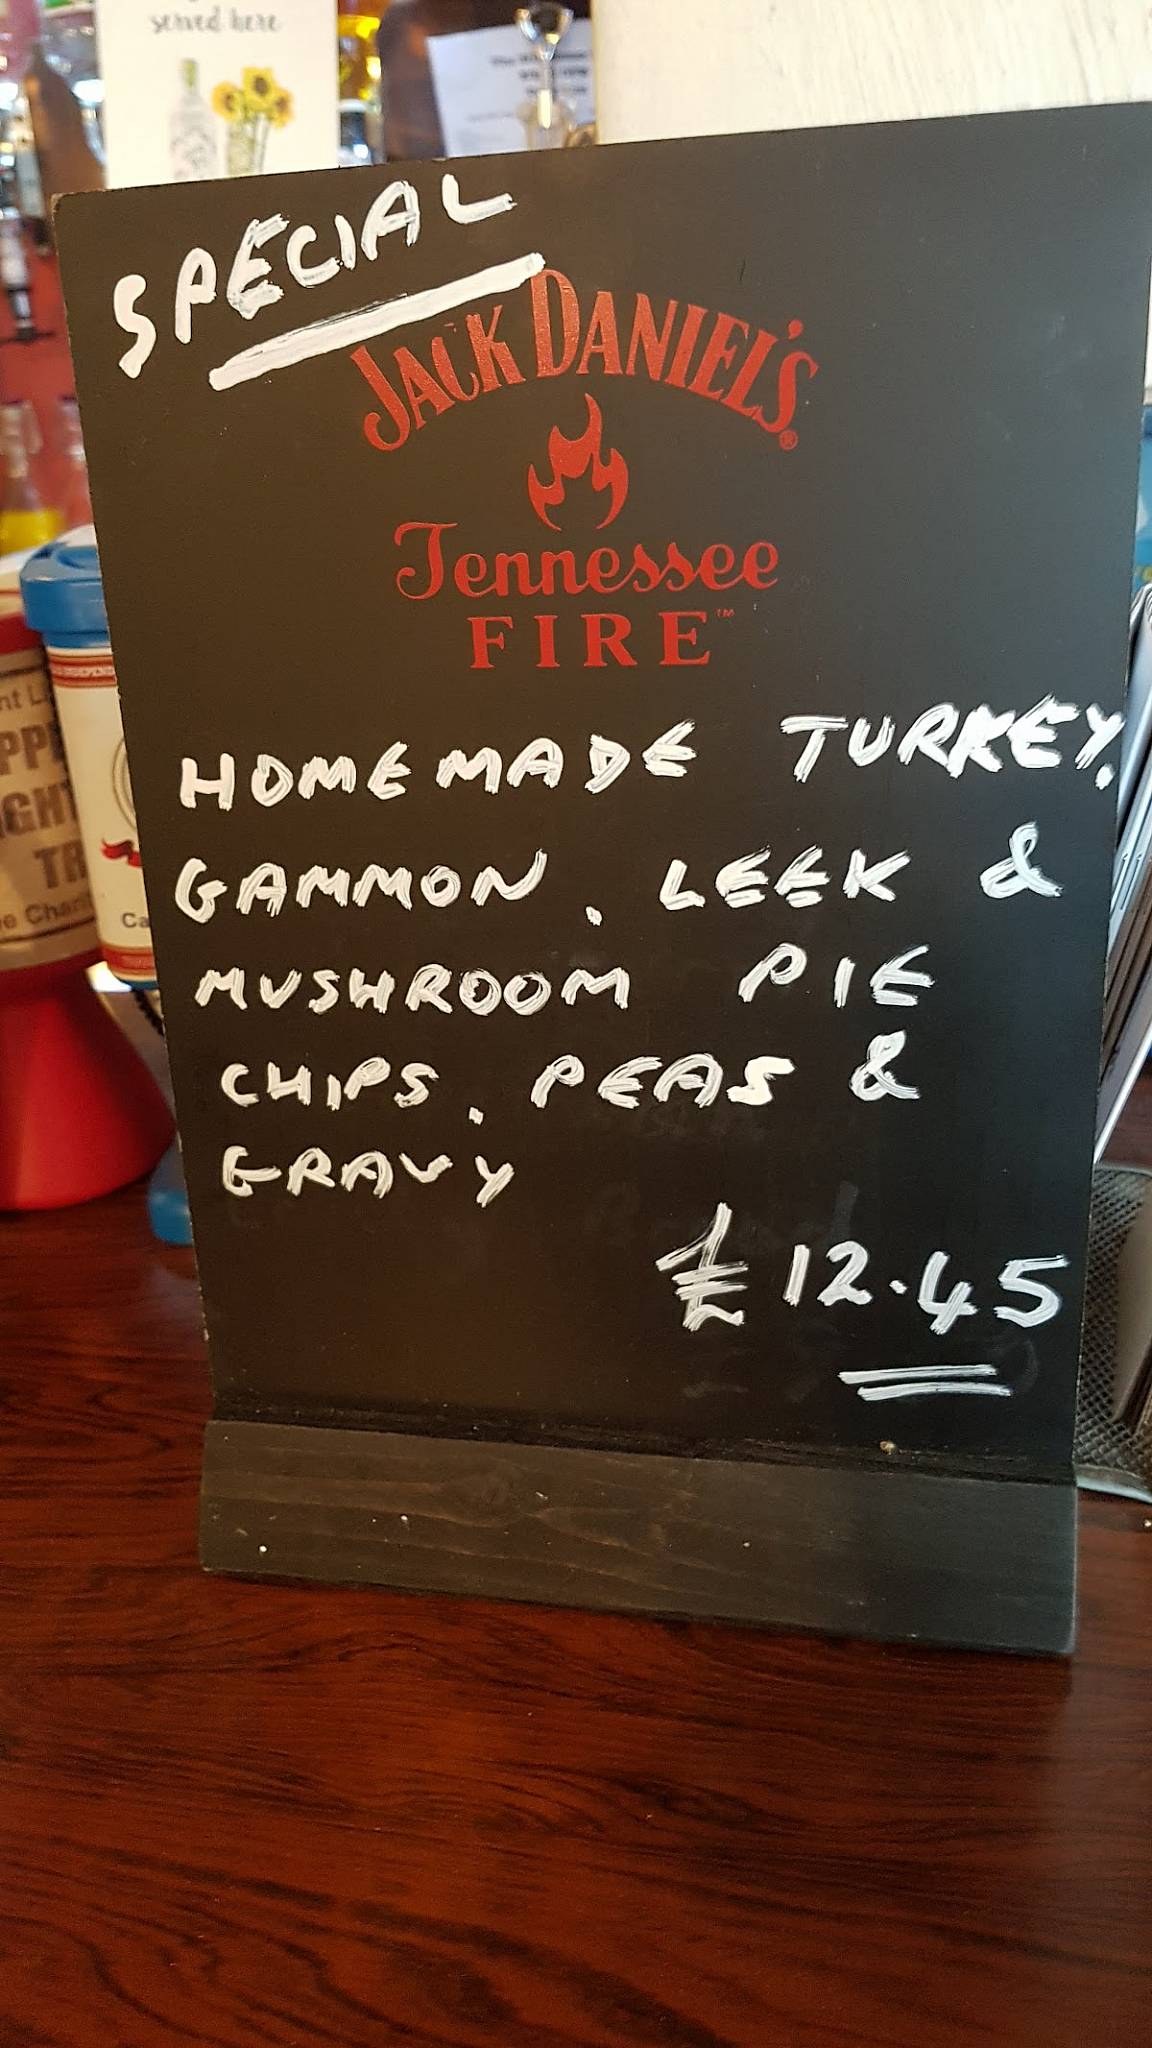 served here
SPECIAL
JACK DANIEL'S®
Tennessee
FIRE™
HOMEMADE TURKEY.
GAMMON. LEEK &
MUSHROOM PIE
CHIPS. PEAS &
GRAVY
£12.45